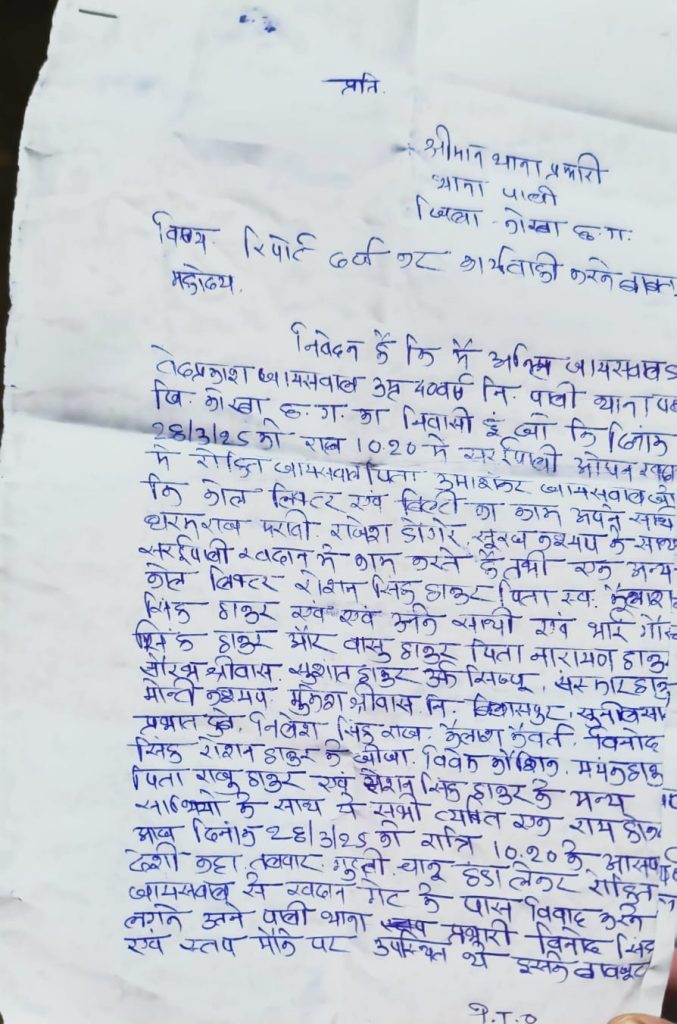 प्रति.
श्रीमान थाना प्रभारी
थाना पाली
जिला - कोरबा छ.ग.
विषय. रिपोर्ट दर्ज कर कार्यवाही करने बाबत
महोदय,
निवेदन है कि मै अनिल जायसवाल
तेदप्रकाश जायसवाल उम्र 40वर्ष नि. पाली थाना
जि. कोरबा छ. ग. का निवासी हूं जो कि दिनांक
28/3/25 को रात्र 10.20 मे सरईपाली ओपन
मे रोहित जायसवाल पिता उमाशंकर जायसवाल जो
कि कोल लिफ्टर एवं का काम अपने साथी
धरमराज मरावी. राजेश डोगरे, सुरज कश्यप के साथ
सरईपाली खदान मे काम करते है तभी एक अन्य
कोल लिफ्टर रोशन सिंह ठाकुर पिता स्व.
सिंह ठाकुर एवं एवं उनके साथी एवं भाई
सिंह ठाकुर और वासु ठाकुर पिता नारायण ठाकुर
सौरभ श्रीवास. सुशांत ठाकुर उर्फ सिप्पू,
मोन्टी कश्यप. मुकेश श्रीवास नि. बिलासपुर,
प्रभात दुबे, निलेश सिंह राज. कैलाश कैवर्त. विनोद
सिंह रोशन ठाकुर के जीजा. विवेक कौशिक.
पिता राजु ठाकुर एवं रोशन सिंह ठाकुर के अन्य
साथियो के साथ मे सभी व्यक्ति एक राय होकर
आज दिनांक 28/3/25 को रात्रि 10.20 के
देशी कट्टा तलवार गुप्ती चाकू डंडा लेकर रोहित
जायसवाल से खदान गेट के पास विवाद करने
लगने पाली थाना प्रभारी विनोद सिंह
एवं स्टाप मौके पर उपस्थित थे इसके बावजूद
P.T.O